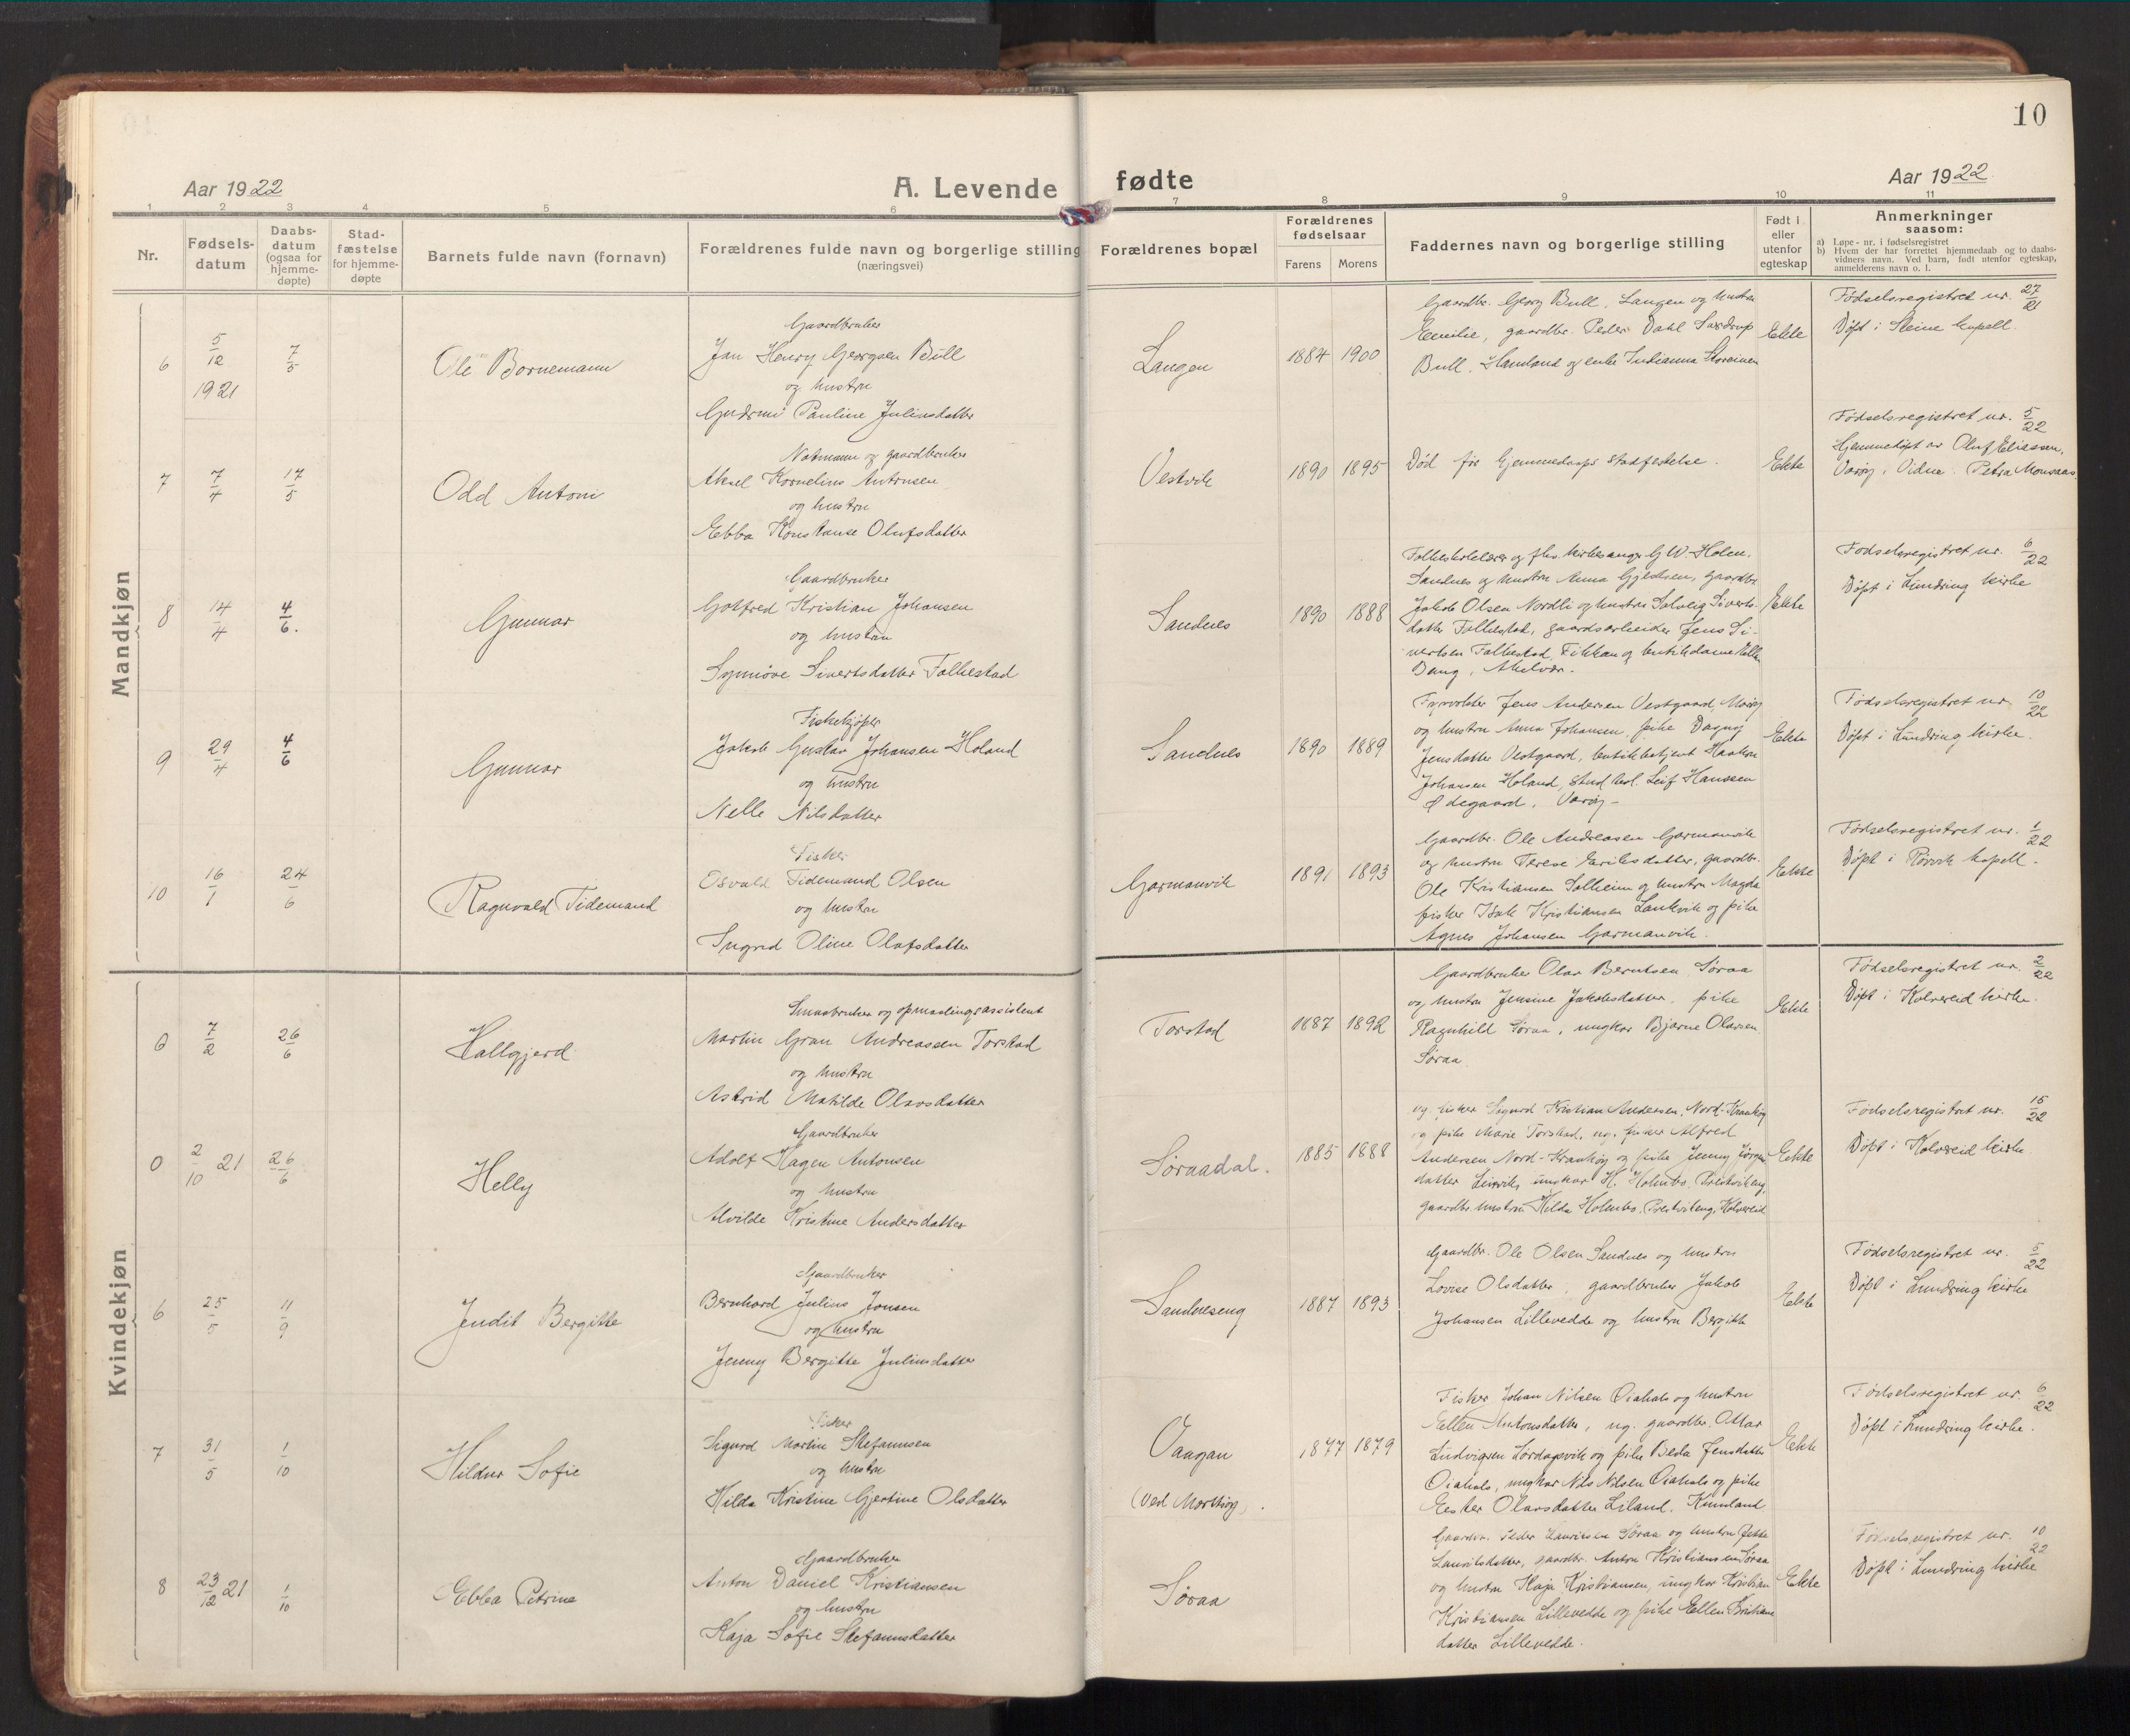 10
Aar 1922
A. Levende fødte
Aar 1922
1 2 3 4 5 6 7 8 9 10 11
Nr.
Fødsels-
datum
Daabs-
datum
(ogsaa for
hjemme-
døpte)
Stad-
fæstelse
for hjemme-
døpte
Barnets fulde navn (fornavn)
Forældrenes fulde navn og borgerlige stilling
(næringsvei)
Forældrenes bopæl
Forældrenes
fødselsaar
Farens
Morens
Faddernes navn og borgerlige stilling
Født i
eller
utenfor
egteskap
Anmerkninger
saasom:
a) Løpe-nr. i fødselsregistret
b) Hvem der har forrettet hjemmedaab og to daabs-
vidners navn. Ved barn, født utenfor egteskap,
anmelderens navn o. l.
Mandkjøn
6
5/12
1921
7/5
Ole Bornemann
Gaardbruker
Jan Henry Georgsen Bull
og hustru
Gudrun Pauline Juliusdatter
Langen
1884 1900
Gaardbr. Georg Bull, Langen og hustru
Emilie, gaardbr. Peder Dahl
Bull, og enke
Ekte
Fødselsregistret nr. 27/21
Døpt i Steine kapell.
7
7/4
17/5
Odd Antoni
Notmann og gaardbruker
Aksel Kornelius Antonsen
og hustru
Ebba Konstanse Olufsdatter
Vestvik
1890 1895
Død før hjemmedaaps stadfestelse.
Ekte
Fødselsregistret nr. 5/22
Hjemmedøpt av Oluf Eliassen,
Værøy. Vidne: Petra
8
14/4
4/6.
Gunnar
Gaardbruker
Gotfred Kristian Johansen
og hustru
Synnøve Sivertsdatter Folkestad
Sandnes
1890 1888
Folkeskolelærer og fhv. kirkesanger G. W. Holen,
Sandnes og hustru Anna Gjertsen, gaardbr.
Jakob Olsen Nordli og hustru Solveig Siverts-
datter Folkestad, gaardsarbeider Jens Si-
vertsen Folkestad, og butikdame
Bang, Abelvær.
Ekte
Fødselsregistret nr. 6/22
Døpt i Lundring kirke
9
29/4
4/6
Gunnar
Fiskekjøper
Jakob Gustav Johansen Holand
og hustru
Nelle Nilsdatter
Sandnes
1890 1889
Fyrvokter Jens Andersen Vestgaard,
og hustru Anna Johansen, pike Dagny
Jensdatter Vestgaard, butikbetjent Haakon
Johansen Holand, stud. Leif Hanssen
Ødegaard, Værøy.
Ekte
Fødselsregistret nr. 10/22
Døpt i Lundring kirke.
10
16/1
24/6
Ragnvald Tidemand
Fisker
Osvald Tidemand Olsen
og hustru
Ingrid Oline Olafsdatter
Garmanvik
1891 1893
Gaardbr. Ole Andreasen Garmanvik
og hustru Terese Eriksdatter, gaardbr.
Ole Kristiansen Solheim og hustru Magda
fisker Isak Kristiansen Lankvik og pike
Agnes Johansen Garmanvik.
Ekte
Fødselsregistret nr. 1/22
Døpt i Rørvik kapell.
Kvindekjøn
0
7/2
26/6
Hallgjerd
Smaabruker og opmaalingsassistent
Martin Gran Andreassen Torstad
og hustru
Astrid Matilde Olavsdatter
Torstad
1887 1892
Gaardbruker Olav Berntsen Søraa
og hustru Jensine Jakobsdatter, pike
Ragnhild Søraa, ungkar Bjarne Olavsen
Søraa
Ekte
Fødselsregistret nr. 2/22
Døpt i Kolvereid kirke.
0
2/10 21
26/6
Helly
Gaardbruker
Adolf Hagen Antonsen
og hustru
Alvilde Kristine Andersdatter
Søraadal.
1885 1888
og fisker Sigurd Kristian Andersen, Nord-Krankøy
og pike Marie Torstad, ug. fisker Alfred
Andersen Nord-Krankøy og pike Jenny Jørgens
datter Leirvik, ungkar H. Holmbo, Prestviteng,
gaardbr. hustru Hilda Holmbo, Prestviteng, Kolvereid
Ekte
Fødselsregistret nr. 15/22
Døpt i Kolvereid kirke
6
25/5
11/9
Jendit Bergitte
Gaardbruker
Bernhard Julius Jonsen
og hustru
Jenny Bergitte Juliusdatter
Sandneseng
1887 1893
Gaardbr. Ole Olsen Sandnes og hustru
Lovise Olsdatter, gaardbruker Jakob
Johansen Lillevedde og hustru Bergitte
Ekte
Fødselsregistret nr. 5/22
Døpt i Lundring kirke
7
31/5
1/10
Hildur Sofie
Fisker
Sigurd Martin Stefannsen
og hustru
Hilda Kristine Gjertine Olsdatter
Vaagan
(ved Mortføy).
1877 1879
Fisker Johan Nilsen Oiahals og hustru
Ellen Antonsdatter, ug. gaardbr. Ottar
Ludvigsen Lørdagsvik og pike Beda Jensdatter
Oiahals, ungkar Nils Nilsen Oiahals og pike
Ester Olavsdatter Liland,
Ekte
Fødselsregistret nr. 6/22
Døpt i Lundring kirke.
8
23/12 21
1/10
Ebba Petrine
Gaardbruker
Anton Daniel Kristiansen
og hustru
Kaja Sofie Stefannsdatter
Søraa
Gaardbr. Peder Lauritsen Søraa og hustru
Lauritsdatter, gaardbr. Anton Kristiansen Søraa
og hustru Kaja Kristiansen, ungkar Kristian
Kristiansen Lillevedde og pike Ellen Kristians
datter Lillevedde.
Ekte
Fødselsregistret nr. 10/22
Døpt i Lundring kirke